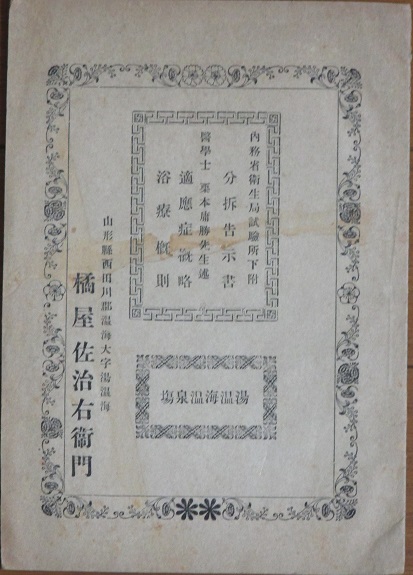 内務省衛生局試驗所下附
分拆告示書
醫學士 栗本庸勝先生述
適應症概略
浴療概則
湯温海温泉塩
山形縣西田川郡温海大字湯温海
橘屋佐治右衛門